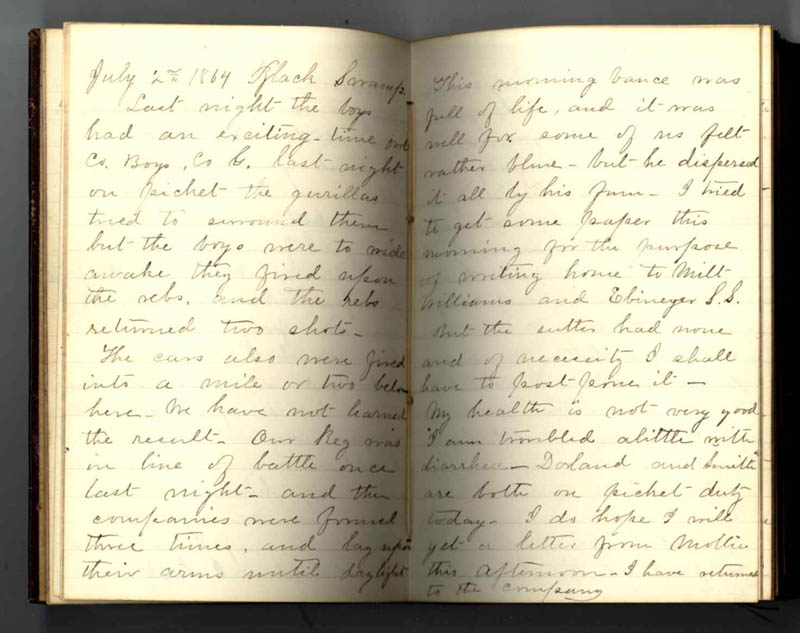 July 2nd 1864 Black Swamp
Last night the boys
had an exciting time our
Co. Boys, Co G. last night
on picket the gurillas
tried to surround them
but the boys were to wide
awake they fired upon
the rebs, and the rebs
returned two shots -
The cars also were fired
into a mile or two below
here - We have not learned
the result - Our Reg was
in line of battle once
last night - and the
companies were formed
three times, and lay upon
their arms until daylight
This morning Vance was
full of life, and it was
well for some of us felt
rather blue - but he dispersed
it all by his fun - I tried
to get some paper this
morning for the purpose
of writing home to Milt
Williams and Ebinezer S.S.
But the sutler had none
and of necessity I shall
have to post-pone it -
My health is not very good
I am troubled alittle with
diarrhea - Dorland and Smith
are both on picket duty
today - I do hope I will
get a letter from Mollie
this afternoon - I have returned
to the company